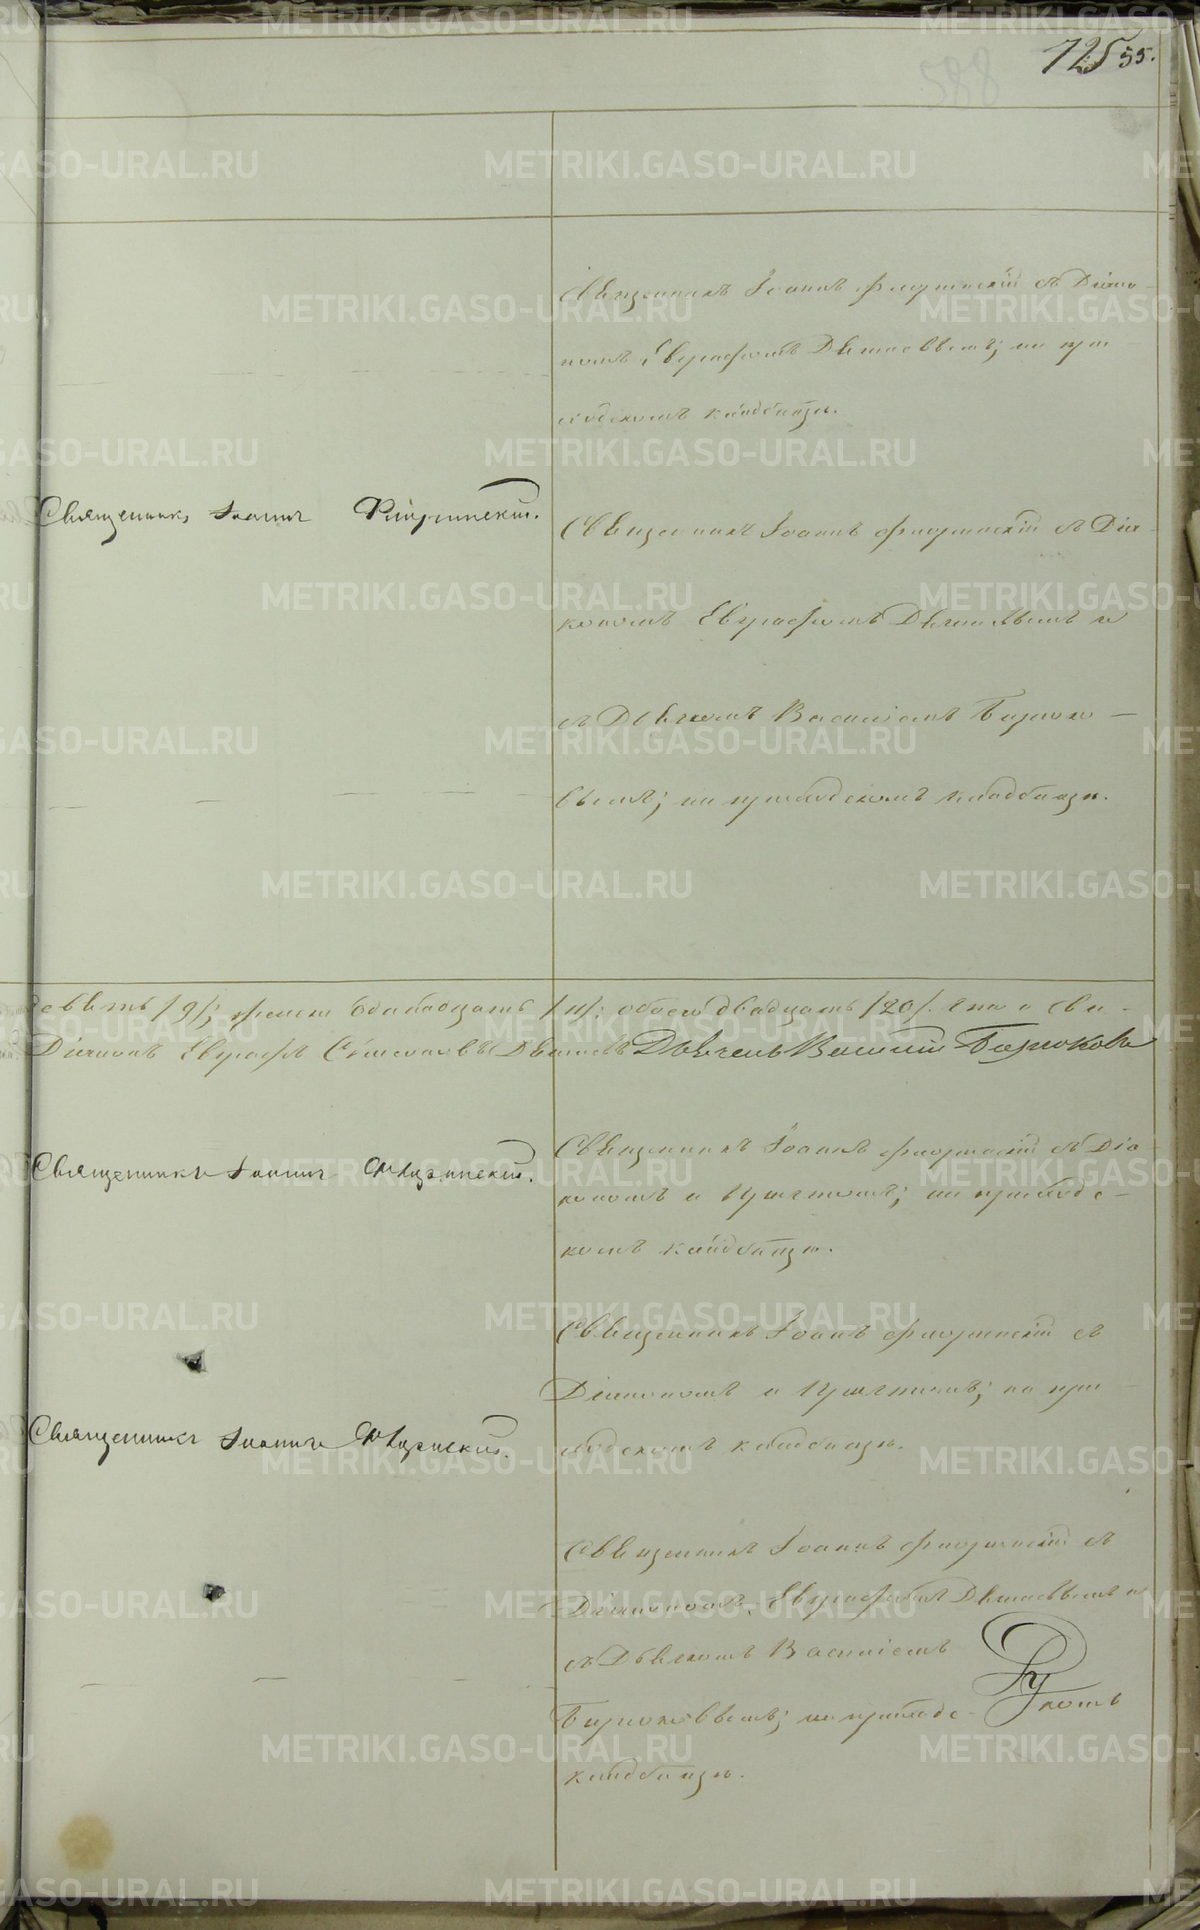 725 55.
588
Священникъ Іоаннъ Флоринскій съ Діако-
номъ Евграфомъ Дягилевымъ; на при-
ходскомъ кладбищѣ.
Священникъ Іоаннъ Флоринскій.
Священникъ Іоаннъ Флоринскій съ Діа-
кономъ Евграфомъ Дягилевымъ и
съ Дьячкомъ Василіемъ Бирюко-
вымъ; на приходскомъ кладбищѣ.
девять /9/; женска одинадцать /11/; обоего двадцать /20/.
Діаконъ Евграфъ Дьячекъ Василій Бирюковъ
Священникъ Іоаннъ Флоринскій съ Діа-
Священникъ Іоаннъ Флоринскій.
кономъ и причтомъ; на приходс-
комъ кладбищѣ.
Священникъ Іоаннъ Флоринскій съ
Діакономъ и причтомъ; на при-
Священникъ Іоаннъ Флоринскій.
ходскомъ кладбищѣ.
Священникъ Іоаннъ Флоринскій съ
Діакономъ Евграфомъ Дягилевымъ и
съ Дьячкомъ Василіемъ
Бирюковымъ; на приходс-
комъ
кладбищѣ.
METRIKI.GASO-URAL.RU